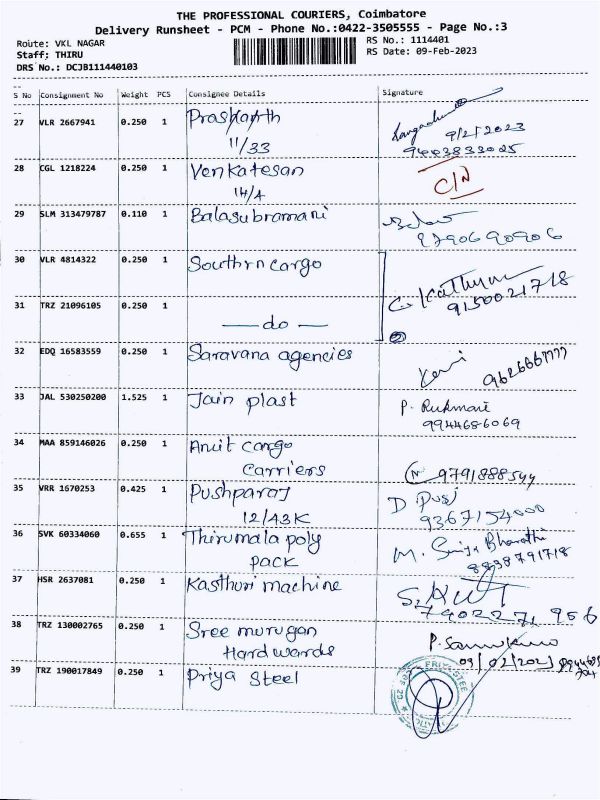 THE PROFESSIONAL COURIERS, Coimbatore
Delivery Runsheet - PCM - Phone No.:0422-3505555 - Page No.:3
Route: VKL NAGAR RS No.: 1114401
Staff; THIRU RS Date: 09-Feb-2023
DRS No.: DCJB111440103
S No Consignment No Weight PCS Consignee Details Signature
27 VLR 2667941 0.250 1 Prashanth
11/33
9/2/2023
9403833025
28 CGL 1218224 0.250 1 Venkatesan
1H/A
C/N
29 SLM 313479787 0.110 1 Balasubramani
9790690906
30 VLR 4814322 0.250 1 Southrn cargo
G. Kathir
9150021718
31 TRZ 21096105 0.250 1
—do—
32 EDQ 16583559 0.250 1 Saravana agencies
9626667777
33 JAL 530250200 1.525 1 Jain plast P. Rukmani
9944686069
34 MAA 859146026 0.250 1 Amit cargo
carriers 9791888544
35 VRR 1670253 0.425 1 Pushparaj
12/43K
D
9367154000
36 SVK 60334060 0.655 1 Thirumala poly
pack
M. Bharathi
8838791718
37 HSR 2637081 0.250 1 Kasthuri machine
7902271956
38 TRZ 130002765 0.250 1 Sree murugan
Hardwards
09/02/2023
39 TRZ 190017849 0.250 1 Priya Steel